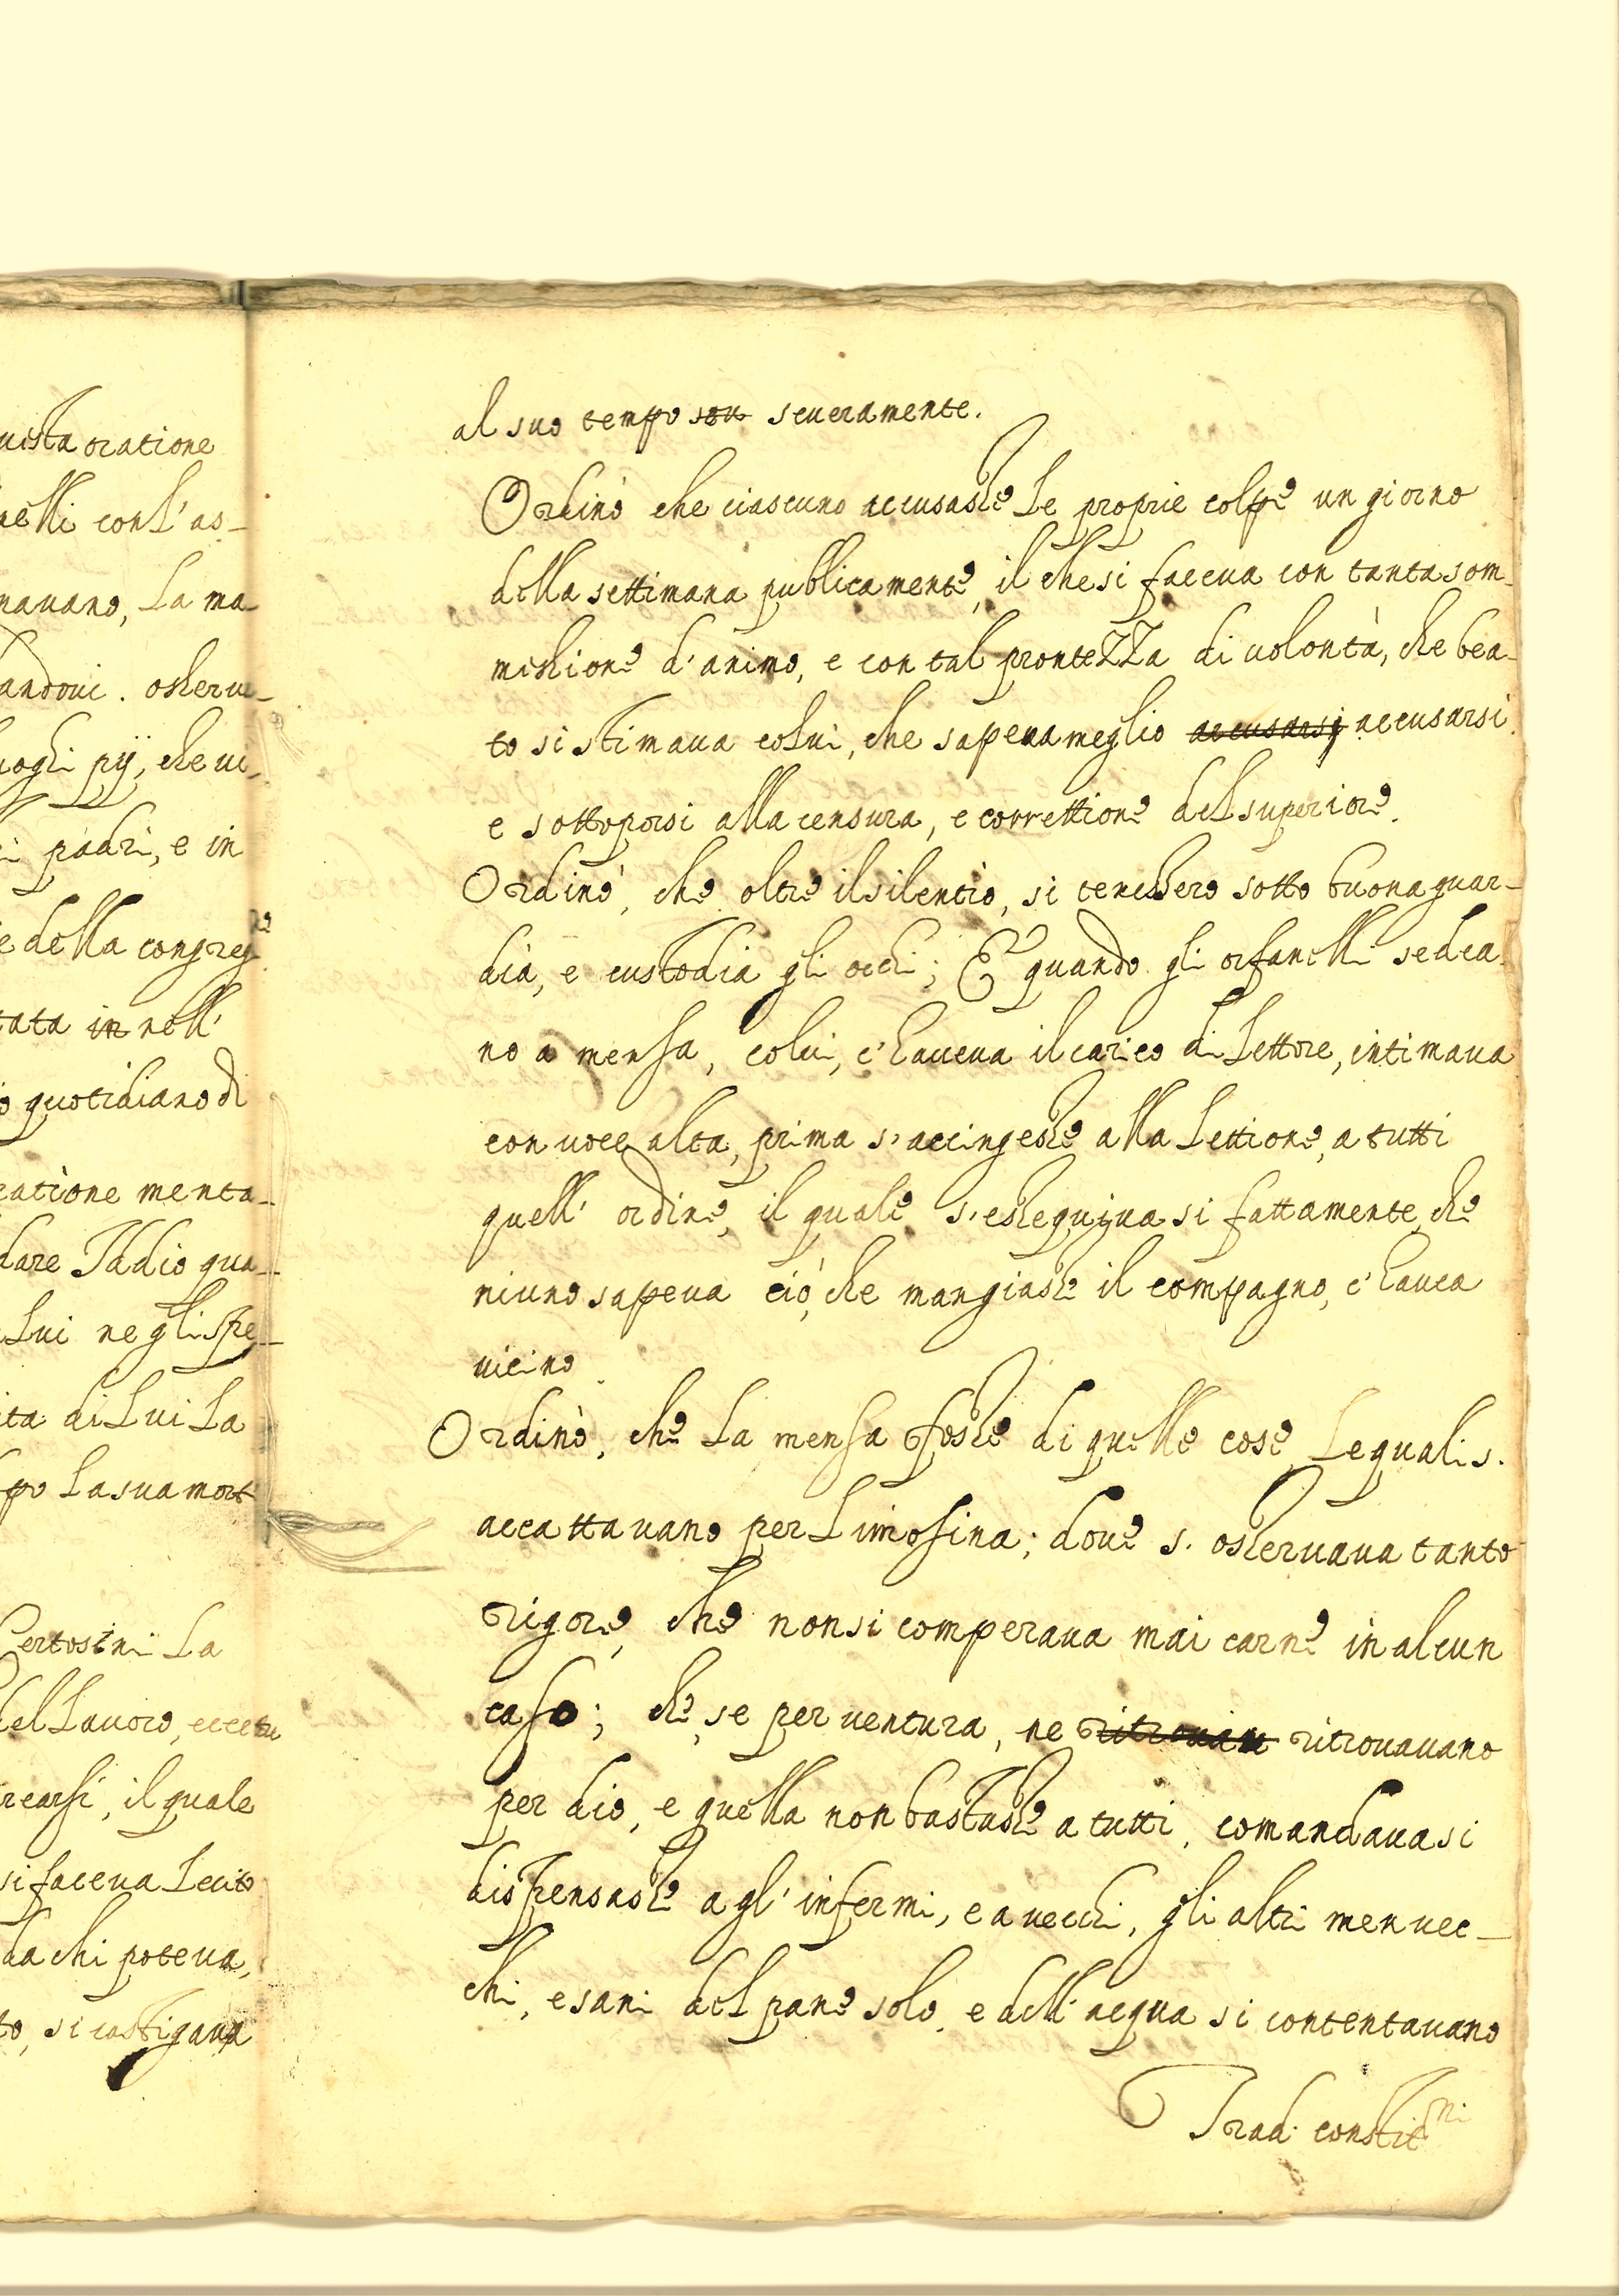 uista oratione
nelli con l'as-
nauano, la ma-
andoui. osserua-
uoghi pij, che ui-
i padri, e in
e della congreg.ne
tata in nell'
o quotidiano di
ratione menta-
dare Iddio qua-
Lui negli spe-
ita di Lui La
po La sua mort
Certosini La
del Lauoro, eccetu
rearsi, il quale
si faceua Lecito
da chi poteua,
to, si castigaua
al suo tempo seu seueramente.
Ordinò che ciascuno accusasse Le proprie colpe un giorno
della settimana publicamente, il che si faceua con tanta som-
missione d'animo, e con tal prontezza di uolontà, che bea-
to si stimaua colui, che sapeua meglio accusarsi accusarsi.
e sottoporsi alla censura, e correttione del superiore.
Ordinò, che oltre il silentio, si tenessero sotto buona guar-
dia, e custodia gli occhi; Et quando gli orfanelli sedea-
no a mensa, colui, c'haueua il carico di Lettore, intimaua
con uoce alta, prima s'accingesse alla Lettione, a tutti
quell' ordine, il quale s'esseguiua si fattamente, che
niuno sapeua ciò, che mangiasse il compagno, c'hauea
uicino.
Ordinò, che La mensa fosse di quelle cose, Le quali s.
accattauano per Limosina; doue s. osseruaua tanto
rigore, che non si comperaua mai carne in alcun
caso; che, se per uentura, ne ritrouau ritrouauano
per dio, e quella non bastasse a tutti, comandauasi
dispensasse a gl' infermi, e a uecchi, gli altri men uec-
chi, e sani del pane solo, e dell' acqua si contentauano
Trad. constit.ni